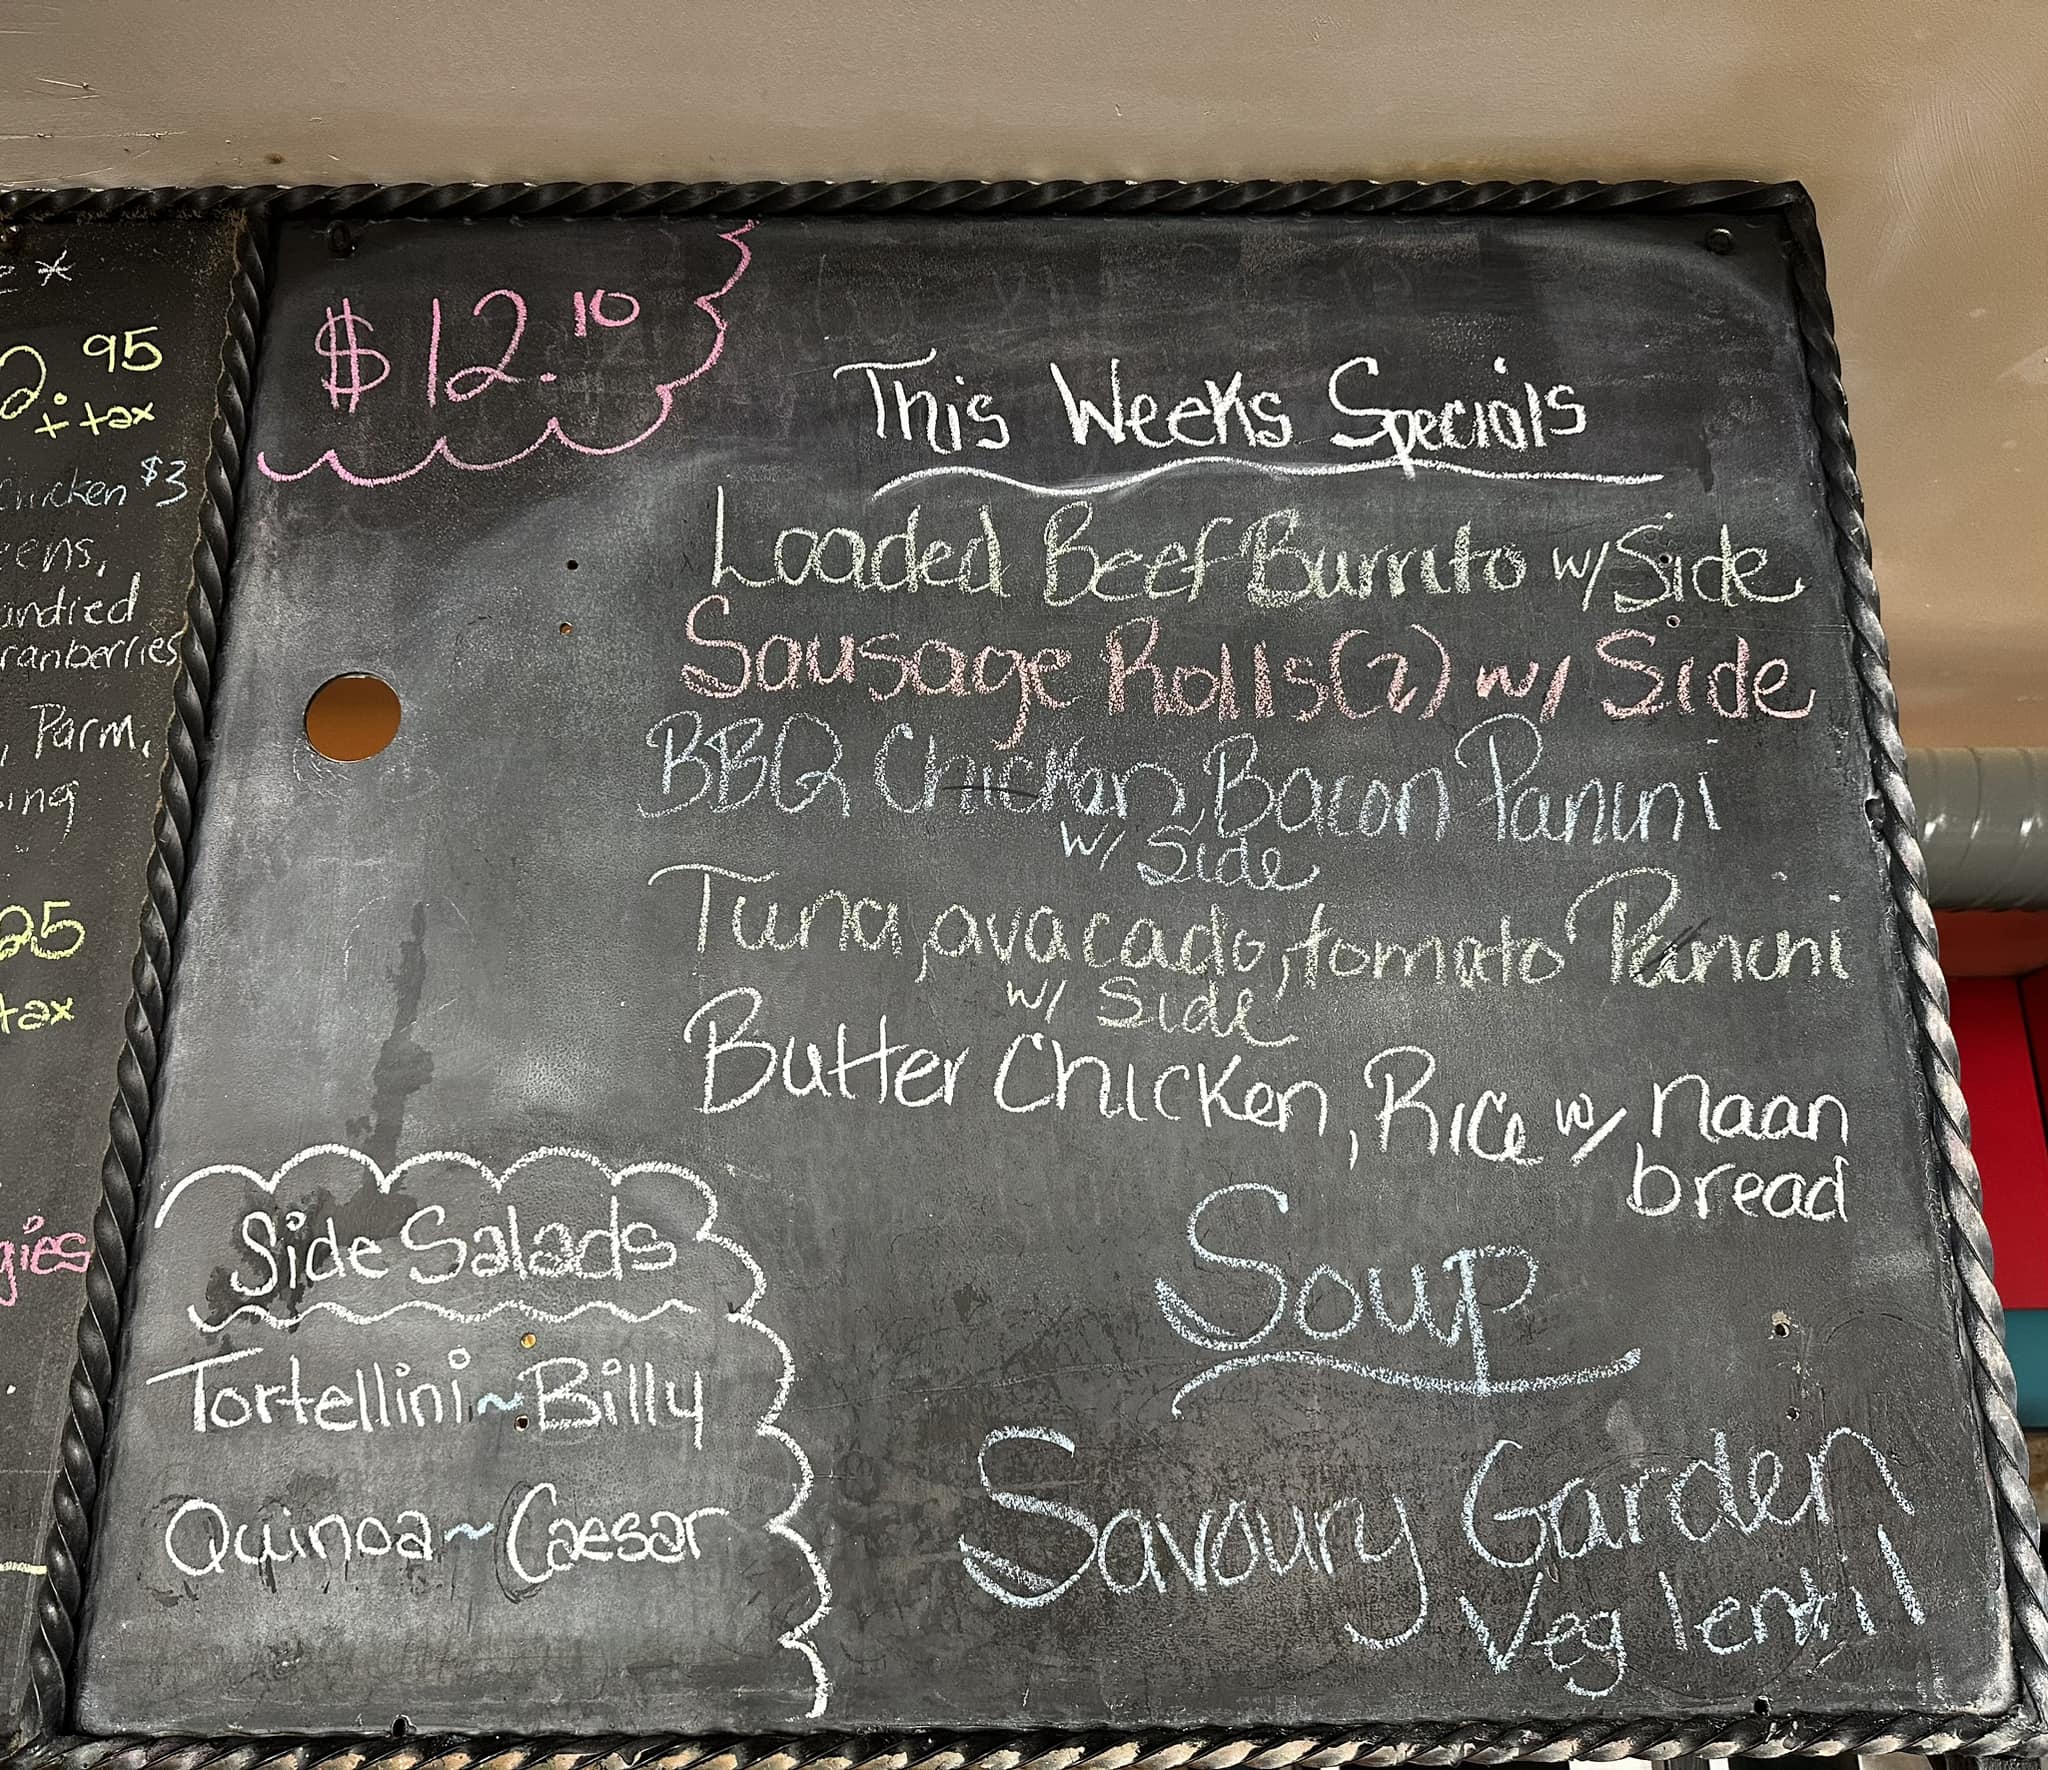 e*
2.95
+ tax
Chicken $3
eens,
andied
ranberries
, Parm,
ing
25
tax
gies
$12.10
This Weeks Specials
Loaded Beef Burrito w/ Side
Sausage Rolls (2) w/ Side
BBQ Chicken, Bacon Panini
w/ Side
Tuna, avacado, tomato Panini
w/ Side
Butter Chicken, Rice w/ naan
bread
Side Salads
Tortellini ~ Billy
Quinoa ~ Caesar
Soup
Savoury Garden
Veg lentil